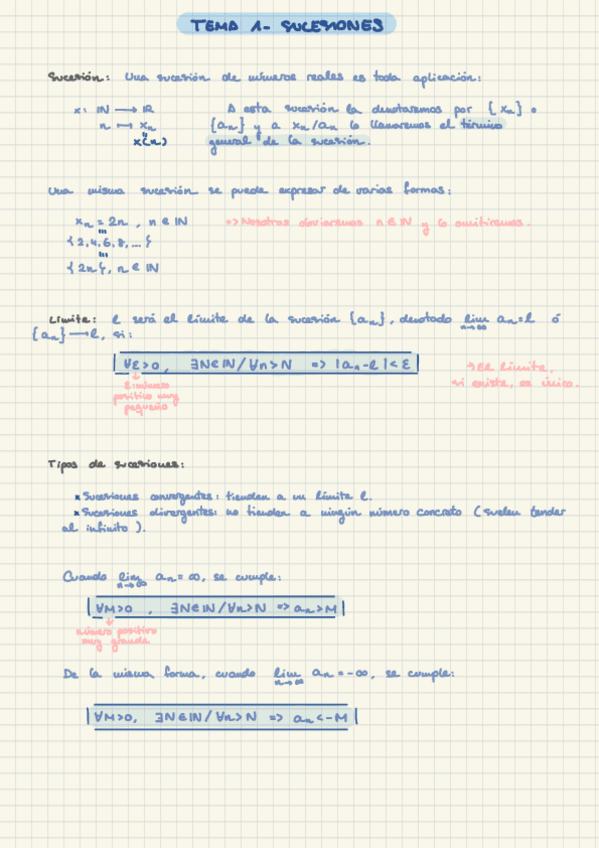 TEMA 1- SUCESIONES
Sucesión: Una sucesión de números reales es toda aplicación:
x: ℕ ⟶ ℝ
n ⟼ xₙ
x(n)
A esta sucesión la denotaremos por {xₙ} o
{aₙ} y a xₙ/aₙ lo llamaremos el término
general de la sucesión.
Una misma sucesión se puede expresar de varias formas:
xₙ = 2n , n ∈ ℕ => Nosotros obviaremos n ∈ ℕ y lo omitiremos.
≡
{2,4,6,8,...}
≡
{2n}, n ∈ ℕ
Límite: l será el límite de la sucesión {aₙ}, denotado lim aₙ = l ó
n→∞
{aₙ} ⟶ l, si:
∀ε>0, ∃N∈ℕ/∀n>N => |aₙ-l|<ε
↓
ε: número
positivo muy
pequeño
→ El límite,
si existe, es único.
Tipos de sucesiones:
* Sucesiones convergentes: tienden a un límite l.
* Sucesiones divergentes: no tienden a ningún número concreto (suelen tender
al infinito).
Cuando lim aₙ = ∞, se cumple:
n→∞
∀M>0 , ∃N∈ℕ/∀n>N => aₙ>M
↓
número positivo
muy grande
De la misma forma, cuando lim aₙ = -∞, se cumple:
n→∞
∀M>0, ∃N∈ℕ/∀n>N => aₙ<-M